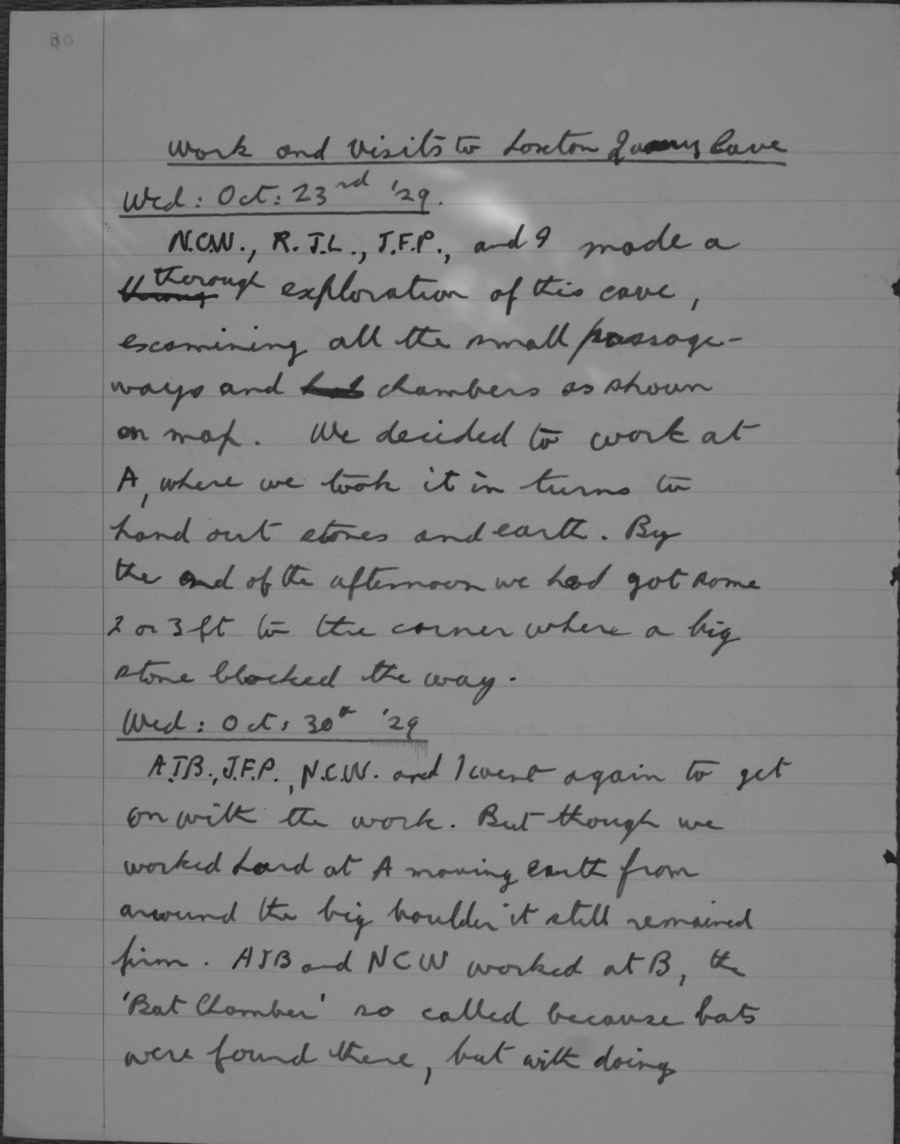 80
Work and Visits to Loxton Quarry Cave
Wed: Oct: 23rd '29.
N.C.W., R.J.L., J.F.P., and I made a
thorough exploration of this cave,
examining all the small passage-
ways and chambers as shown
on map. We decided to work at
A, where we took it in turns to
hand out stones and earth. By
the end of the afternoon we had got some
2 or 3 ft to the corner where a big
stone blocked the way.
Wed: Oct: 30th '29
AJB., J.F.P., N.C.W. and I went again to get
on with the work. But though we
worked hard at A moving earth from
around the big boulder it still remained
firm. AJB and NCW worked at B, the
'Bat Chamber' so called because bats
were found there, but with doing